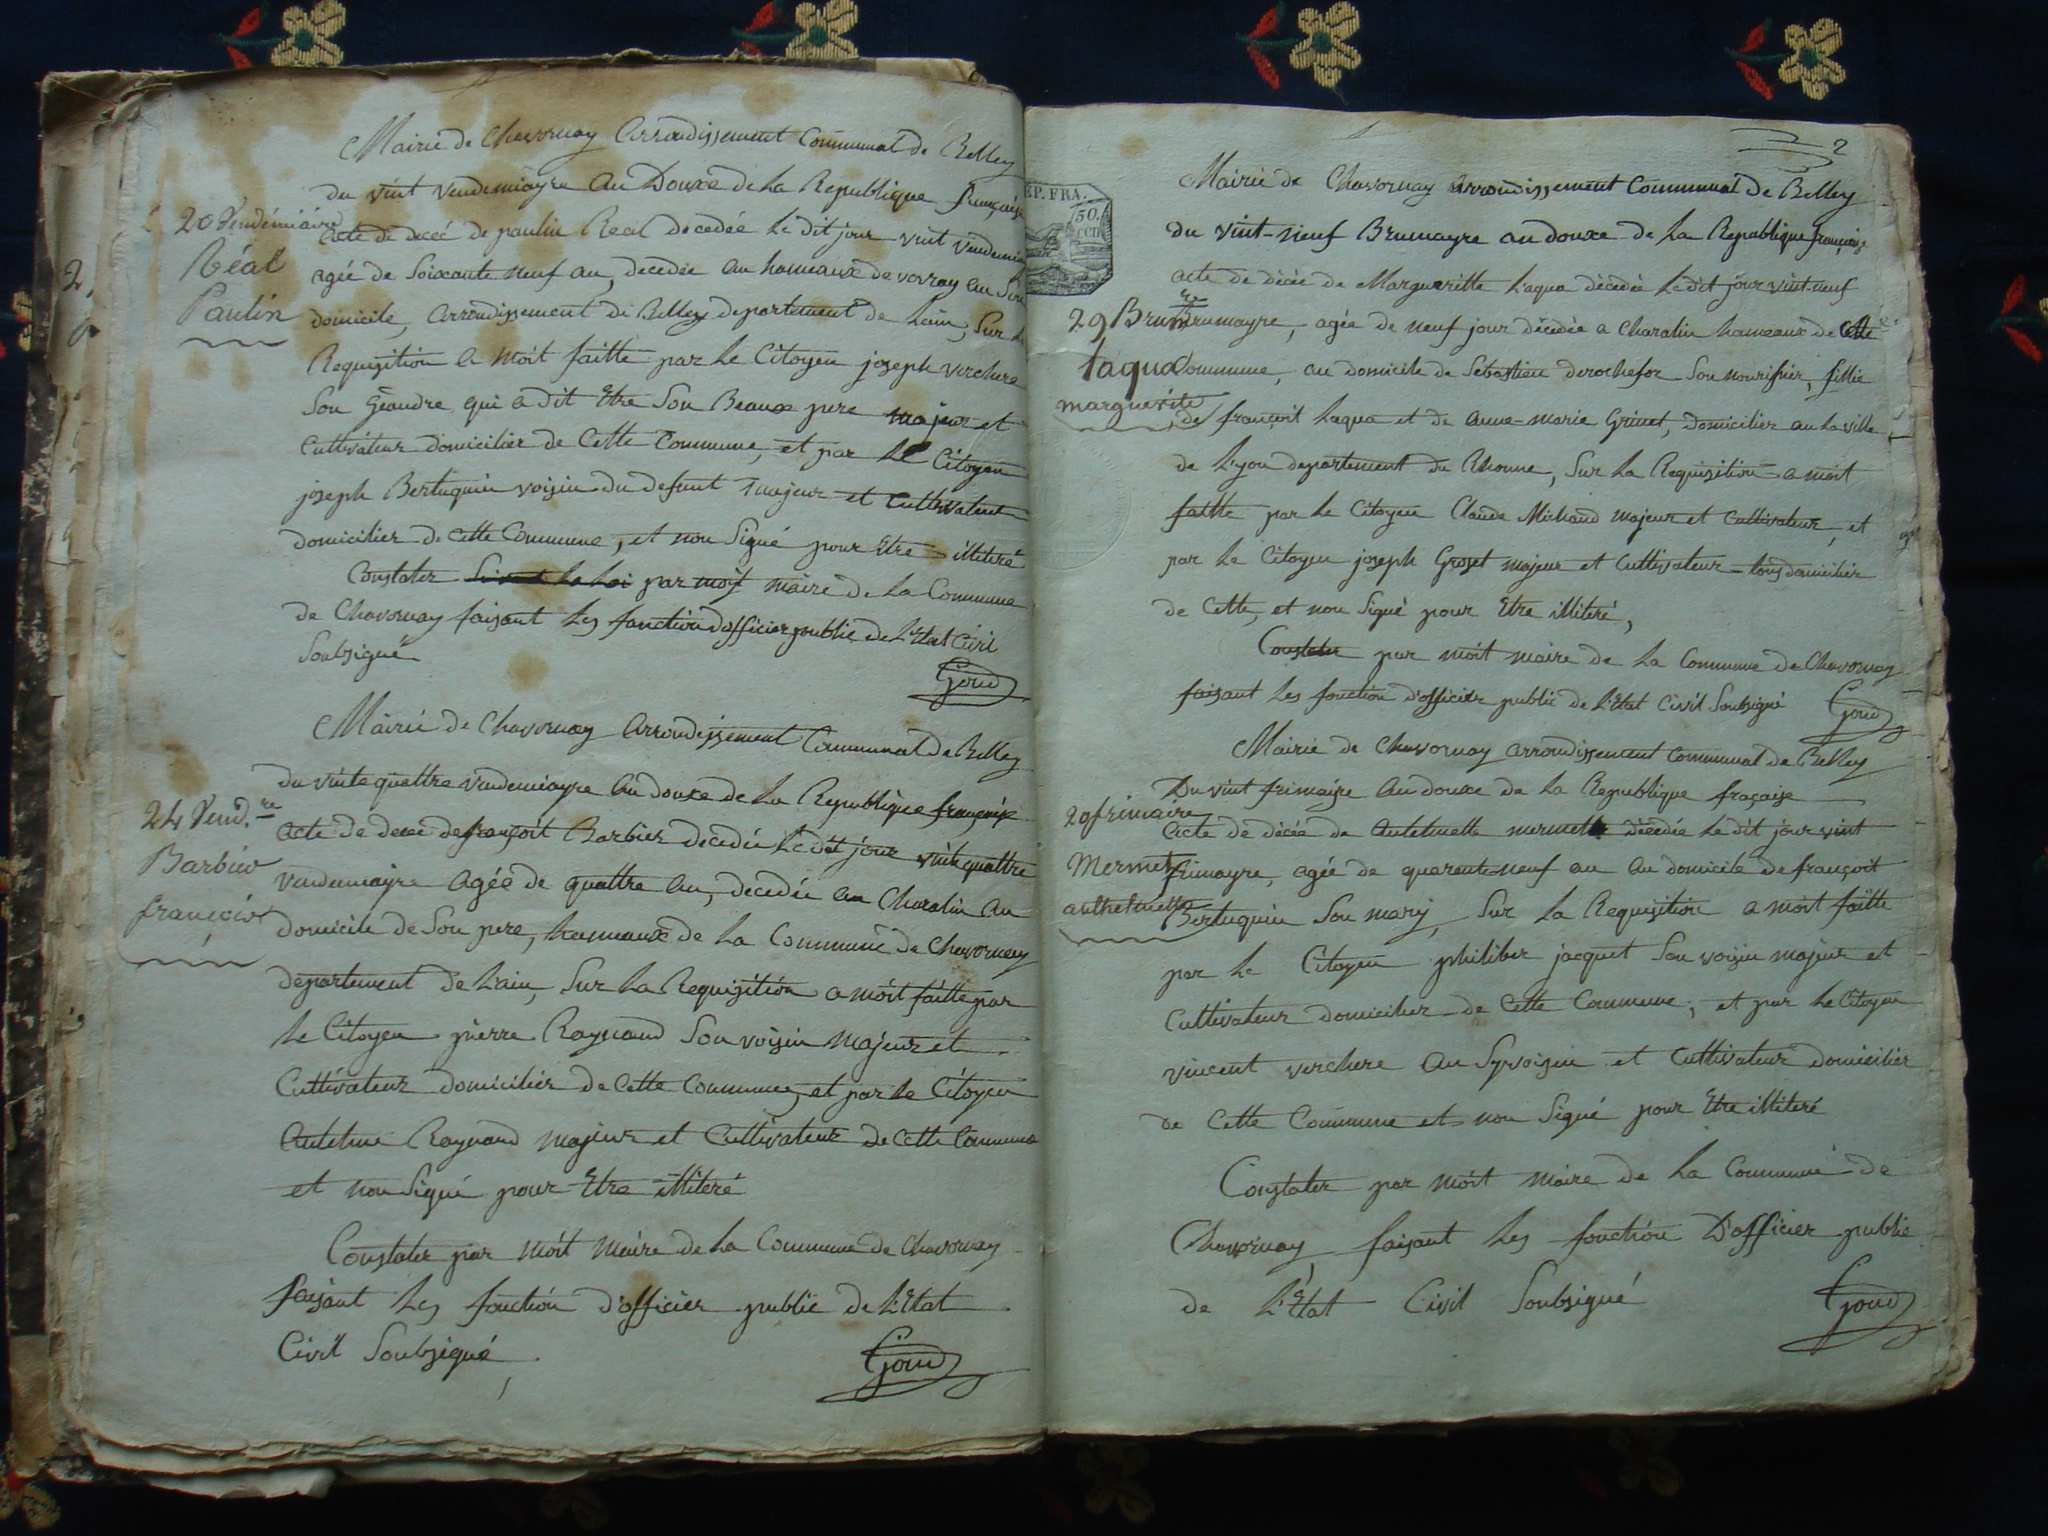 Mairie de Chavornay Arrondissement Communal de Belley
du vint vendemiayre an Douxe de La Republique françaîse
20 Vendémiaire
acte de deceé de paulin Real decedée le dit jour vint vendemi
Réal
agée de Soixante neuf an, decedée au hameaux de vovray en Son
Paulin
domicile, arrondissement de Belley departement de Lain, Sur La
Requisition a moit faitte par le Citoyen joseph verchere
Son Geandre qui a dit Etre Son Beaux pere majeur et
Cultivateur domicilier de Cette Commune, et par le Citoyen
joseph Bertuquin voisin du defunt majeur et Cultivateur
domicilier de cette Commune, et non Signé pour Etre illiteré
Constater par moit maire de La Commune
de Chavornay faisant les fonction d'officier public de L'Etat Civil
Soubsigné
Goud
Mairie de Chavornay Arrondissement Communal de Belley
du vinte quattre vendemiayre an douxe de La Republique françaîse
24 Vend.re
acte de decee de françoit Barbier decedée Le dit jour vinte quattre
Barbier
vendemiayre agée de quattre an, decedée au Charalin au
françois
domicile de Son pere, hameaux de La Commune de Chavornay
departement de Lain, Sur La Requisition a moit faitte par
Le Citoyen pierre Raynaud Son voisin majeur et
Cultivateur domicilier de Cette Commune, et par Le Citoyen
Antelme Raynaud majeur et Cultivateur de Cette Commune
et non Signé pour Etre illiteré
Constater par moit maire de La Commune de Chavornay
faisant Les fonction d'officier public de L'Etat
Civil Soubsigné
Goud
2
REP. FRA.
50.
CEN
Mairie de Chavornay Arrondissement Communal de Belley
du vint-neuf Brumayre an douxe de La Republique française
acte de décée de Margueritte Laqua décedée Le dit jour vint-neuf
29 Brum.re
Brumayre, agée de neuf jour décedée a Charalin hameaux de Cette
Laqua
Commune, au domicile de Sebastien derochefor Son nourisier, fillie
marguerite
de françoit Laqua et de anne-marie Grinet, domicilier au La ville
de Lyon departement du Rhonne, Sur La Requisition a moit
faitte par Le Citoyen Claude Michaud majeur et Cultivateur, et
par Le Citoyen joseph Groset majeur et Cultivateur tous domicilier
de Cette, et non Signé pour Etre illiteré,
Constater par moit maire de La Commune de Chavornay
faisant Les fonction d'officier public de L'Etat Civil Soubsigné
Goud
Mairie de Chavornay arrondissement Communal de Belley
Du vint frimaise an douxe de La Republique fraçaise
20 frimaire
acte de décée de Antelmette mermette décedée Le dit jour vint
Mermet
frimayre, agée de quarente-neuf an au domicile de françoit
anthelmette
Bertuquin Son mary, Sur La Requisition a moit faitte
par Le Citoyen philiber jacquet Son voisin majeur et
Cultivateur domicilier de Cette Commune, et par Le Citoyen
vincent verchere au Syvoisin et Cultivateur domicilier
de Cette Commune et non Signé pour Etre illiteré
Constater par moit maire de La Commune de
Chavornay faisant Les fonction D'officier public
de L'Etat Civil Soubsigné
Goud